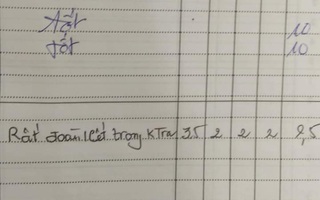 Tốt 10
Tốt 10
Rất đoàn kết trong KTra 3,5 2 2 2 9,5